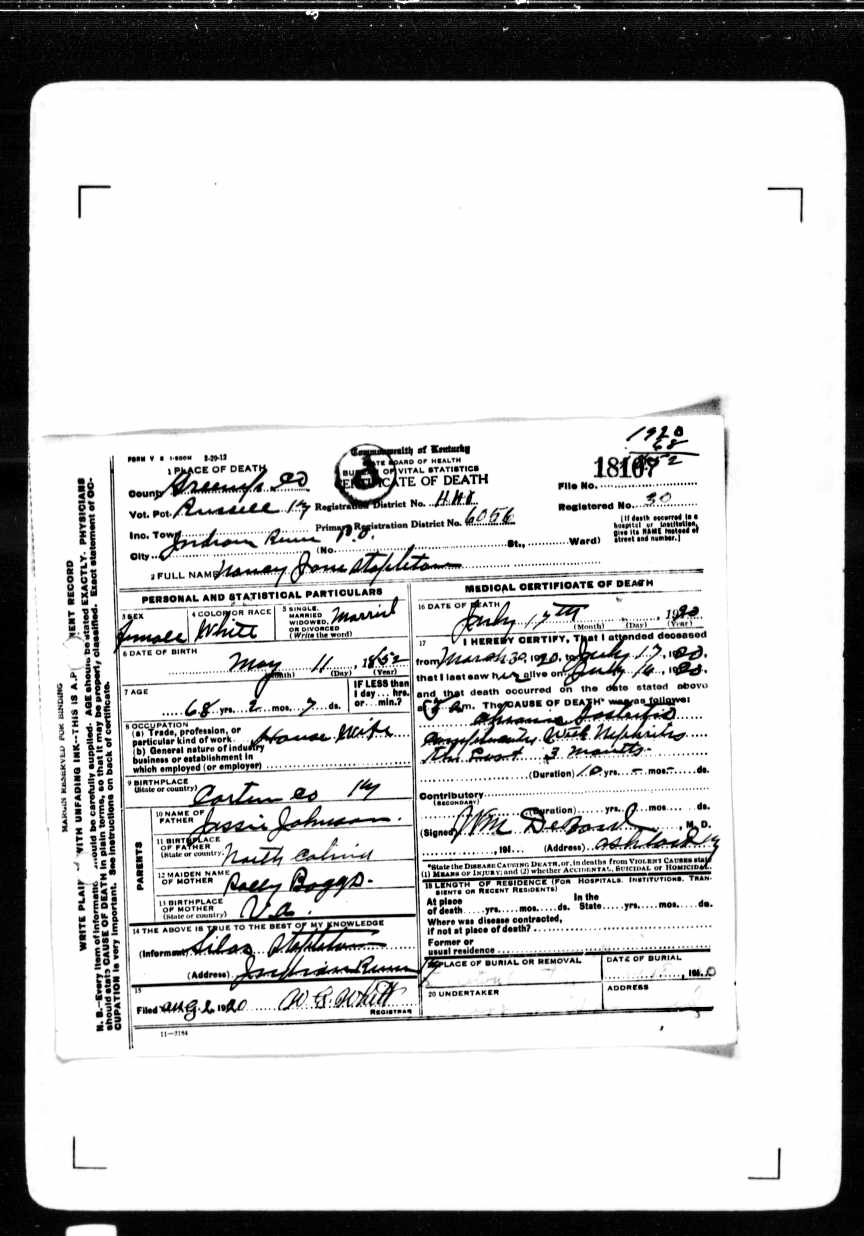 1920
68
1852
FORM V S 1-500M 8-29-13
Commonwealth of Kentucky
STATE BOARD OF HEALTH
BUREAU OF VITAL STATISTICS
CERTIFICATE OF DEATH
1 PLACE OF DEATH
County Greenup Co
Vot. Pct. Russell Ky Registration District No.
Inc. Town Indian Run P.O. Primary Registration District No. 6056
City (No. St., Ward)
File No. 18167
Registered No. 30
(If death occurred in a hospital or institution, give its NAME instead of street and number.)
2 FULL NAME Nancy Jane Stapleton
PERSONAL AND STATISTICAL PARTICULARS
3 SEX Female
4 COLOR OR RACE White
5 SINGLE, MARRIED WIDOWED, OR DIVORCED (Write the word) Married
6 DATE OF BIRTH May 11, 1852
(Month) (Day) (Year)
7 AGE 68 yrs. 2 mos. 7 ds.
IF LESS than 1 day... hrs. or... min.?
8 OCCUPATION
(a) Trade, profession, or particular kind of work House Wife
(b) General nature of industry business or establishment in which employed (or employer)
9 BIRTHPLACE (State or country) Carter Co Ky
PARENTS
10 NAME OF FATHER Jessie Johnson.
11 BIRTHPLACE OF FATHER (State or country) North
12 MAIDEN NAME OF MOTHER Polly Boggs.
13 BIRTHPLACE OF MOTHER (State or country) Va.
14 THE ABOVE IS TRUE TO THE BEST OF MY KNOWLEDGE
(Informant) Silas Stapleton
(Address) Indian Run
15
Filed Aug. 2, 1920 W. G. Whitt
REGISTRAR
11—3184
MEDICAL CERTIFICATE OF DEATH
16 DATE OF DEATH July 17th, 1920
(Month) (Day) (Year)
17 I HEREBY CERTIFY, That I attended deceased
from March 30, 1920, to July 17, 1920,
that I last saw her alive on July 16, 1920,
and that death occurred on the date stated above
at m. The CAUSE OF DEATH* was as follows:
With Nephritis
the Past 3 months.
(Duration) 10 yrs. – mos. – ds.
Contributory
(SECONDARY)
(Duration) yrs. mos. ds.
(Signed) Wm DeBord, M. D.
, 191 (Address) Ashland Ky
*State the DISEASE CAUSING DEATH, or, in deaths from VIOLENT CAUSES state
(1) MEANS OF INJURY; and (2) whether ACCIDENTAL, SUICIDAL or HOMICIDAL.
18 LENGTH OF RESIDENCE (FOR HOSPITALS, INSTITUTIONS, TRANSIENTS OR RECENT RESIDENTS)
At place of death yrs. mos. ds. In the State yrs. mos. ds.
Where was disease contracted, if not at place of death?
Former or usual residence
19 PLACE OF BURIAL OR REMOVAL
DATE OF BURIAL
, 191 0
20 UNDERTAKER
ADDRESS
MARGIN RESERVED FOR BINDING
N. B.—Every item of information should be carefully supplied. AGE should be stated EXACTLY. PHYSICIANS
should state CAUSE OF DEATH in plain terms, so that it may be properly classified. Exact statement of OC-
CUPATION is very important. See instructions on back of certificate.